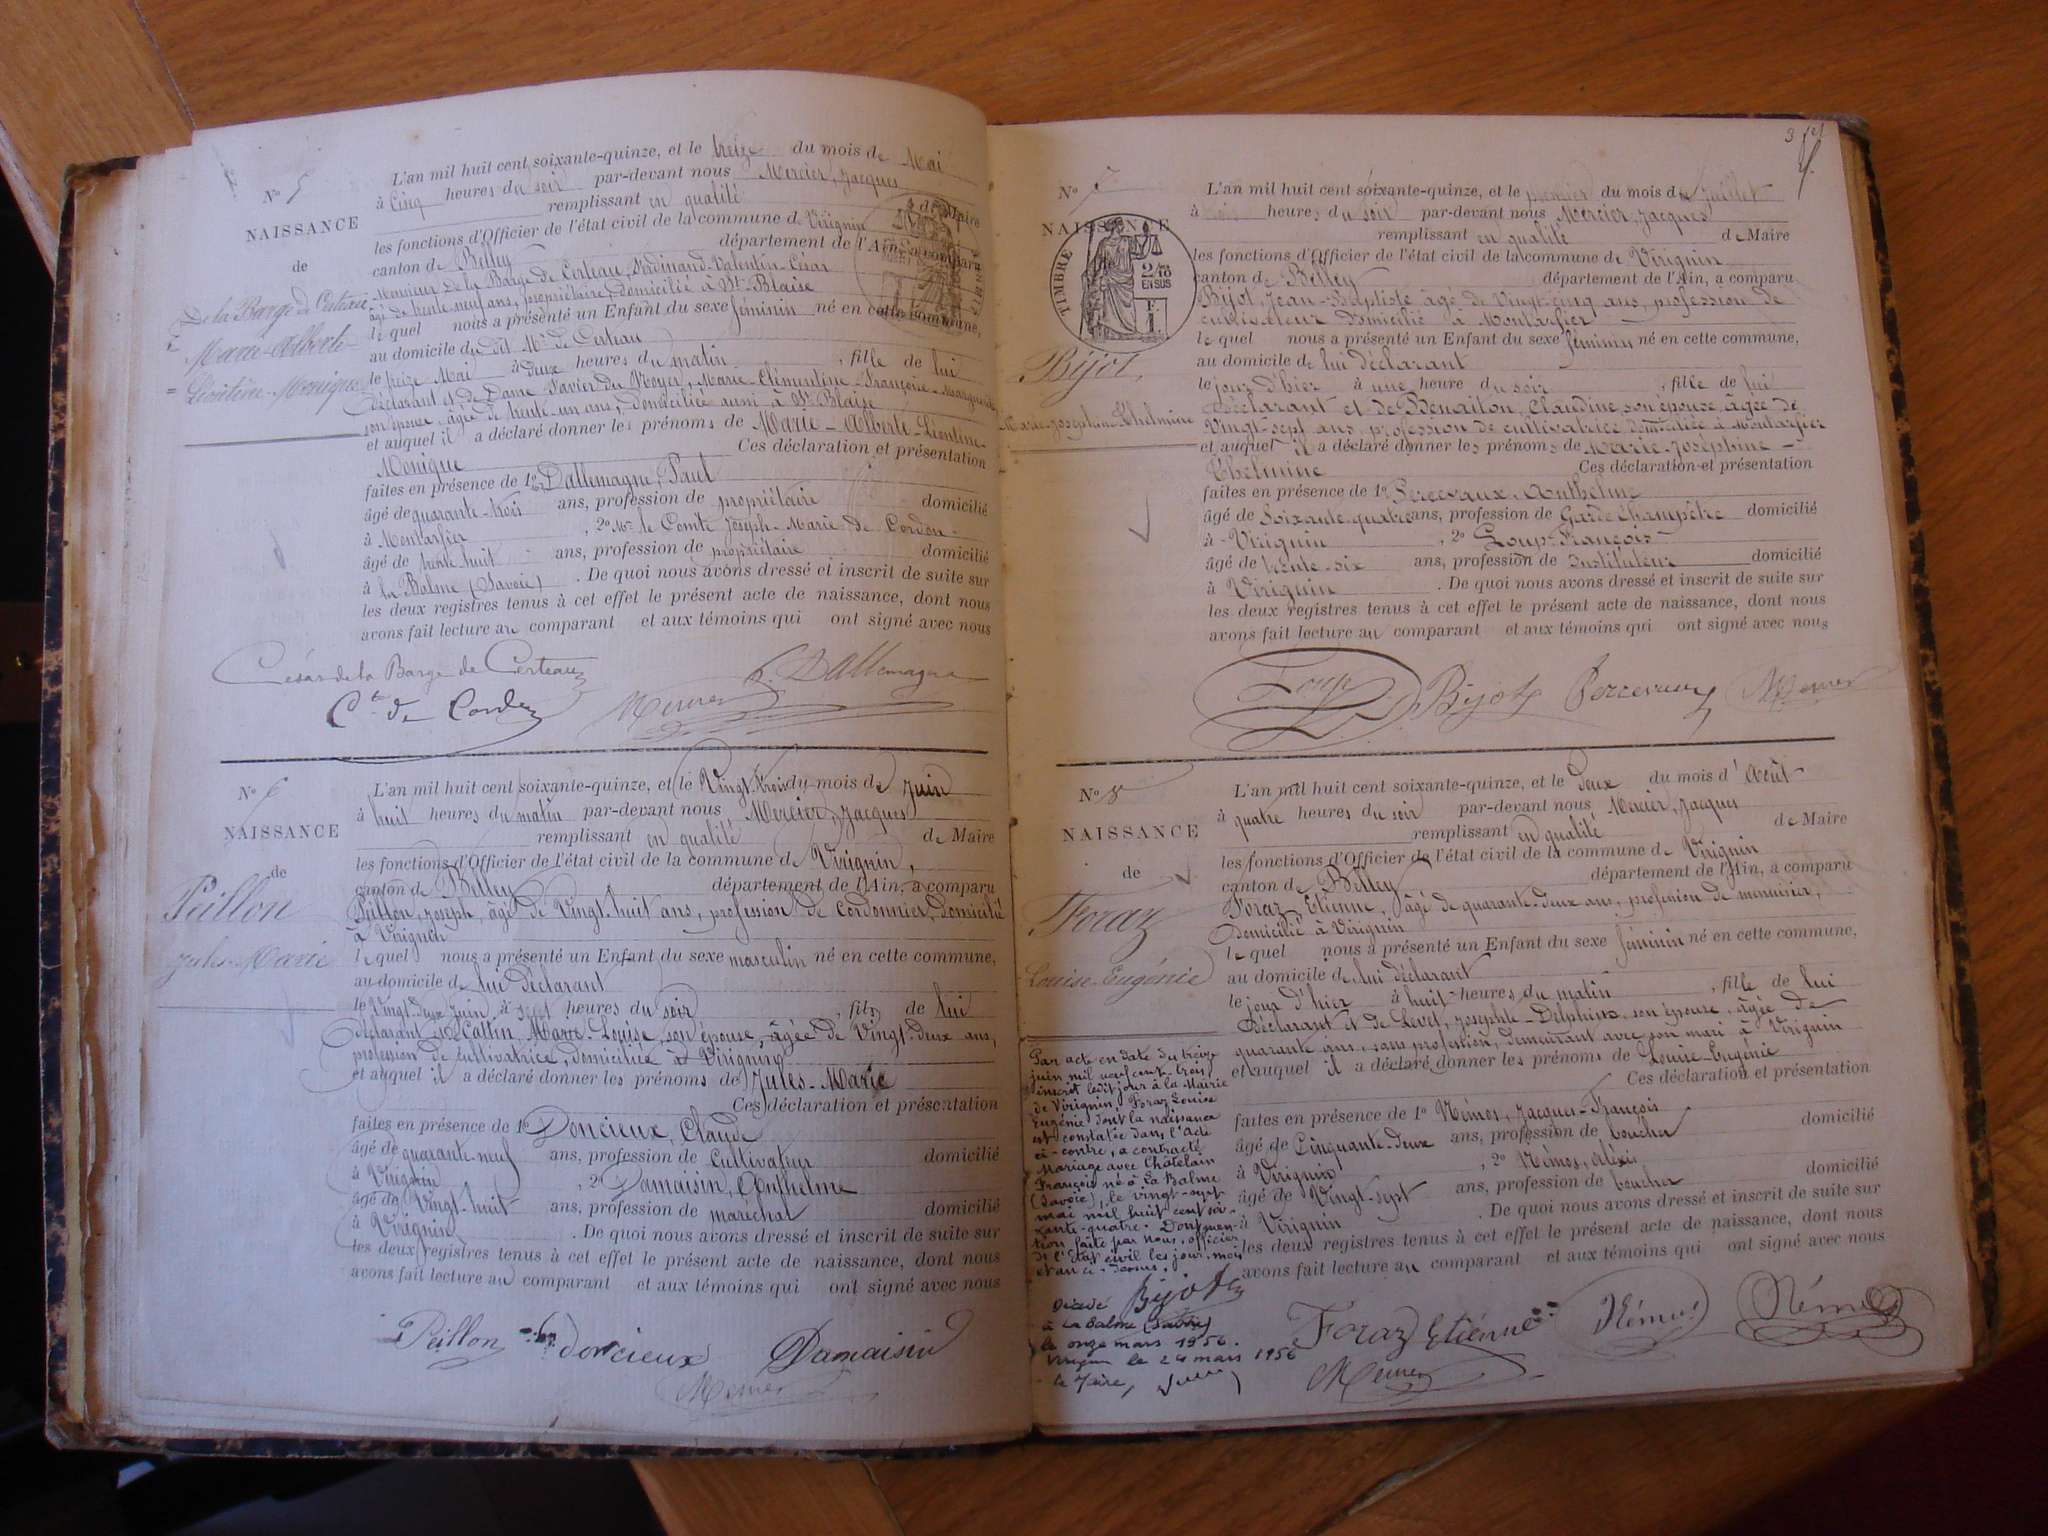 N° 5
NAISSANCE
de
De la Barge de Certeau
Marie-Alberte-
Léontine-Monique
L'an mil huit cent soixante-quinze, et le treize du mois de Mai
à Cinq heures du soir par-devant nous Mercier, Jacques
remplissant en qualité de Maire
les fonctions d'Officier de l'état civil de la commune de Virignin
canton de Belley département de l'Ain, a comparu
Monsieur De la Barge de Certeau, Ferdinand-Valentin-César
âgé de trente neuf ans, propriétaire, domicilié à St-Blaise
le quel nous a présenté un Enfant du sexe féminin né en cette commune,
au domicile du dit Mr de Certeau
le treize Mai à deux heures du matin, fille de lui
déclarant et de Dame Marie-Clémentine-Françoise-Marguerite
son épouse, âgée de trente-un ans, domiciliée aussi à St Blaise
et auquel il a déclaré donner les prénoms de Marie-Alberte-Léontine-
Monique Ces déclaration et présentation
faites en présence de 1° Dallemagne, Paul
âgé de quarante-trois ans, profession de propriétaire domicilié
à Montarfier, 2° Mr le Comte Joseph-Marie de Cordon-
âgé de trente huit ans, profession de propriétaire domicilié
à la Balme (Savoie). De quoi nous avons dressé et inscrit de suite sur
les deux registres tenus à cet effet le présent acte de naissance, dont nous
avons fait lecture au comparant et aux témoins qui ont signé avec nous
César de la Barge de Certeau
P. Dallemagne
Cte de Cordon
Mercier
N° 6
NAISSANCE
de
Peillon
Jules-Marie
L'an mil huit cent soixante-quinze, et le Vingt-trois du mois de Juin
à huit heures du matin par-devant nous Mercier, Jacques
remplissant en qualité de Maire
les fonctions d'Officier de l'état civil de la commune de Virignin,
canton de Belley département de l'Ain, a comparu
Peillon, Joseph, âgé de Vingt-huit ans, profession de Cordonnier, domicilié
à Virignin
le quel nous a présenté un Enfant du sexe masculin né en cette commune,
au domicile de lui déclarant
le Vingt-deux Juin à sept heures du soir, fils de lui
déclarant et de Cattin, Marie-Louise, son épouse, âgée de Vingt-deux ans,
profession de Cultivatrice, domiciliée à Virignin
et auquel il a déclaré donner les prénoms de Jules-Marie
Ces déclaration et présentation
faites en présence de 1° Doncieux, Claude
âgé de quarante-neuf ans, profession de Cultivateur domicilié
à Virignin, 2° Damaisin, Anthelme
âgé de Vingt-huit ans, profession de maréchal domicilié
à Virignin. De quoi nous avons dressé et inscrit de suite sur
les deux registres tenus à cet effet le présent acte de naissance, dont nous
avons fait lecture au comparant et aux témoins qui ont signé avec nous
Peillon doncieux Damaisin
Mercier
3
N° 7
NAISSANCE
TIMBRE
2/10
EN SUS
Bijot,
Marie-Joséphine-Thelmine
L'an mil huit cent soixante-quinze, et le premier du mois de Juillet
à heures du soir par-devant nous Mercier, Jacques
remplissant en qualité de Maire
les fonctions d'Officier de l'état civil de la commune de Virignin
canton de Belley département de l'Ain, a comparu
Bijot, Jean-Baptiste âgé de Vingt-cinq ans, profession de
cultivateur domicilié à Montarfier
le quel nous a présenté un Enfant du sexe féminin né en cette commune,
au domicile de lui déclarant
le jour d'hier à une heure du soir, fille de lui
déclarant et de Benaiton, Claudine, son épouse, âgée de
Vingt-sept ans, profession de cultivatrice domiciliée à Montarfier
et auquel il a déclaré donner les prénoms de Marie-Joséphine-
Thelmine Ces déclaration et présentation
faites en présence de 1° Percevaux, Anthelme
âgé de Soixante-quatre ans, profession de Garde Champêtre domicilié
à Virignin, 2° Loup-François
âgé de trente-six ans, profession de Instituteur domicilié
à Virignin. De quoi nous avons dressé et inscrit de suite sur
les deux registres tenus à cet effet le présent acte de naissance, dont nous
avons fait lecture au comparant et aux témoins qui ont signé avec nous
Loup Bijot Percevaux Mercier
N° 8
NAISSANCE
de
Foraz
Louise-Eugénie
L'an mil huit cent soixante-quinze, et le deux du mois d'Août
à quatre heures du soir par-devant nous Mercier, Jacques
remplissant en qualité de Maire
les fonctions d'Officier de l'état civil de la commune de Virignin
canton de Belley département de l'Ain, a comparu
Foraz, Etienne, âgé de quarante-deux ans, profession de menuisier,
domicilié à Virignin
le quel nous a présenté un Enfant du sexe féminin né en cette commune,
au domicile de lui déclarant
le jour d'hier à huit heures du matin, fille de lui
déclarant et de Levet, Josephte-Delphine, son épouse, âgée de
quarante ans, sans profession, demeurant avec son mari à Virignin
et auquel il a déclaré donner les prénoms de Louise-Eugénie
Ces déclaration et présentation
faites en présence de 1° Némos, Jacques-François
âgé de Cinquante-deux ans, profession de boucher domicilié
à Virignin, 2° Némos, Alexis
âgé de Vingt-sept ans, profession de boucher domicilié
à Virignin. De quoi nous avons dressé et inscrit de suite sur
les deux registres tenus à cet effet le présent acte de naissance, dont nous
avons fait lecture au comparant et aux témoins qui ont signé avec nous
Par acte en date du treize
juin mil neuf cent trois
inscrit ledit jour à la Mairie
de Virignin, Foraz Louise
Eugénie dont la naissance
est constatée dans l'acte
ci-contre, a contracté
Mariage avec Châtelain
François né à La Balme
(Savoie), le vingt-sept
mai mil huit cent soi-
xante-quatre. Dont men-
tion faite par nous, officier
de l'Etat civil les jour, mois
et an ci-dessus.
Bijot
Décédé
à La Balme (Savoie)
le onze mars 1956.
Virignin le 24 mars 1956
le Maire,
Foraz Etienne Némos Némos
Mercier